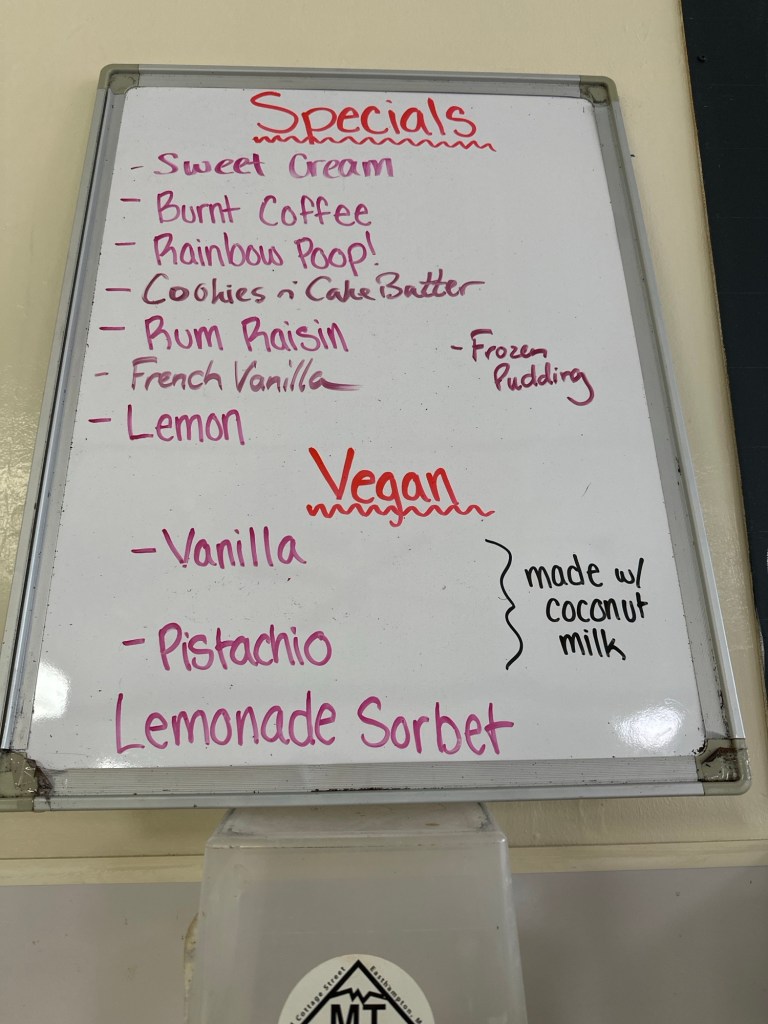 Specials
- Sweet Cream
- Burnt Coffee
- Rainbow Poop!
- Cookies n' Cake Batter
- Rum Raisin
- French Vanilla
- Lemon
- Frozen
Pudding
Vegan
- Vanilla
- Pistachio
made w/
coconut
milk
Lemonade Sorbet
Cottage Street
Easthampton, M
MT